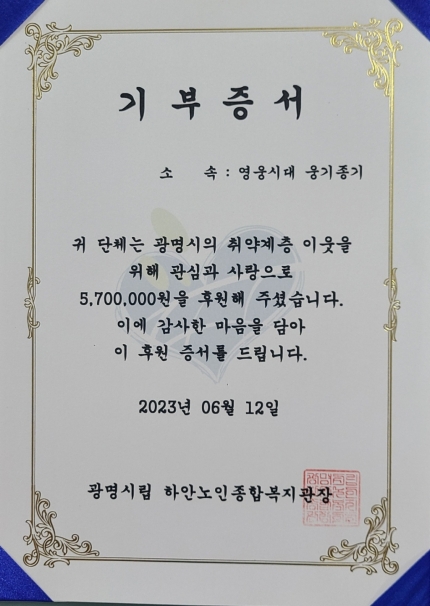 기부증서
소 속 : 영웅시대 웅기종기
귀 단체는 광명시의 취약계층 이웃을
위해 관심과 사랑으로
5,700,000원을 후원해 주셨습니다.
이에 감사한 마음을 담아
이 후원 증서를 드립니다.
2023년 06월 12일
광명시립 하안노인종합복지관장